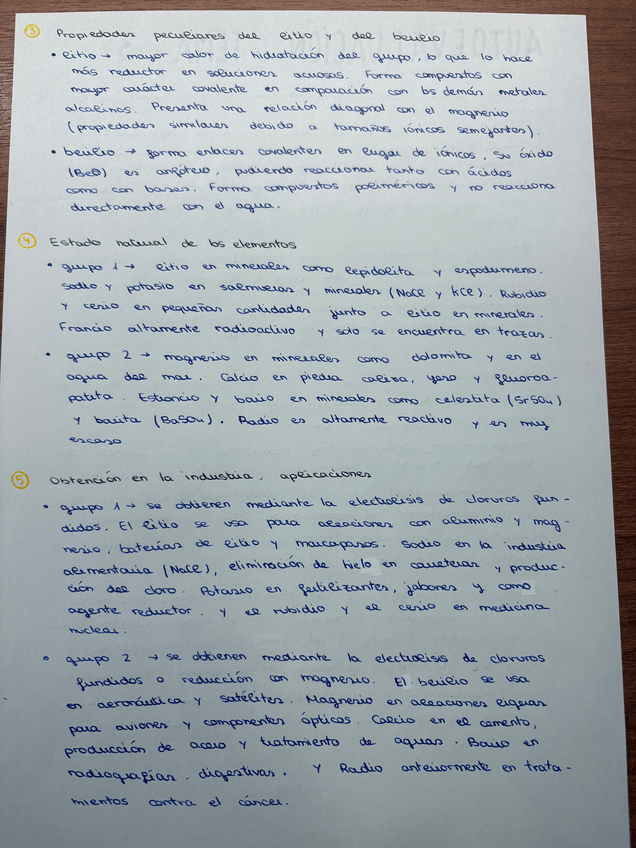 ③ Propiedades peculiares del litio y del berilio
• litio → mayor calor de hidratación del grupo, lo que lo hace
más reductor en soluciones acuosas. Forma compuestos con
mayor carácter covalente en comparación con los demás metales
alcalinos. Presenta una relación diagonal con el magnesio
(propiedades similares debido a tamaños iónicos semejantes).
• berilio → forma enlaces covalentes en lugar de iónicos. Su óxido
(BeO) es anfótero, pudiendo reaccionar tanto con ácidos
como con bases. Forma compuestos poliméricos y no reacciona
directamente con el agua.
④ Estado natural de los elementos
• grupo 1 → litio en minerales como lepidolita y espodumeno.
Sodio y potasio en salmueras y minerales (NaCl y KCl). Rubidio
y cesio en pequeñas cantidades junto a litio en minerales.
Francio altamente radioactivo y solo se encuentra en trazas.
• grupo 2 → magnesio en minerales como dolomita y en el
agua del mar. Calcio en piedra caliza, yeso y fluoroa-
patita. Estroncio y bario en minerales como celestita (SrSO₄)
y barita (BaSO₄). Radio es altamente reactivo y es muy
escaso
⑤ Obtención en la industria, aplicaciones
• grupo 1 → se obtienen mediante la electrólisis de cloruros fun-
didos. El litio se usa para aleaciones con aluminio y mag-
nesio, baterías de litio y marcapasos. Sodio en la industria
alimentaria (NaCl), eliminación de hielo en carreteras y produc-
ción del cloro. Potasio en fertilizantes, jabones y como
agente reductor. y el rubidio y el cesio en medicina
nuclear.
• grupo 2 → se obtienen mediante la electrólisis de cloruros
fundidos o reducción con magnesio. El berilio se usa
en aeronáutica y satélites. Magnesio en aleaciones ligeras
para aviones y componentes ópticos. Calcio en el cemento,
producción de acero y tratamiento de aguas. Bario en
radiografías digestivas. y Radio anteriormente en trata-
mientos contra el cáncer.